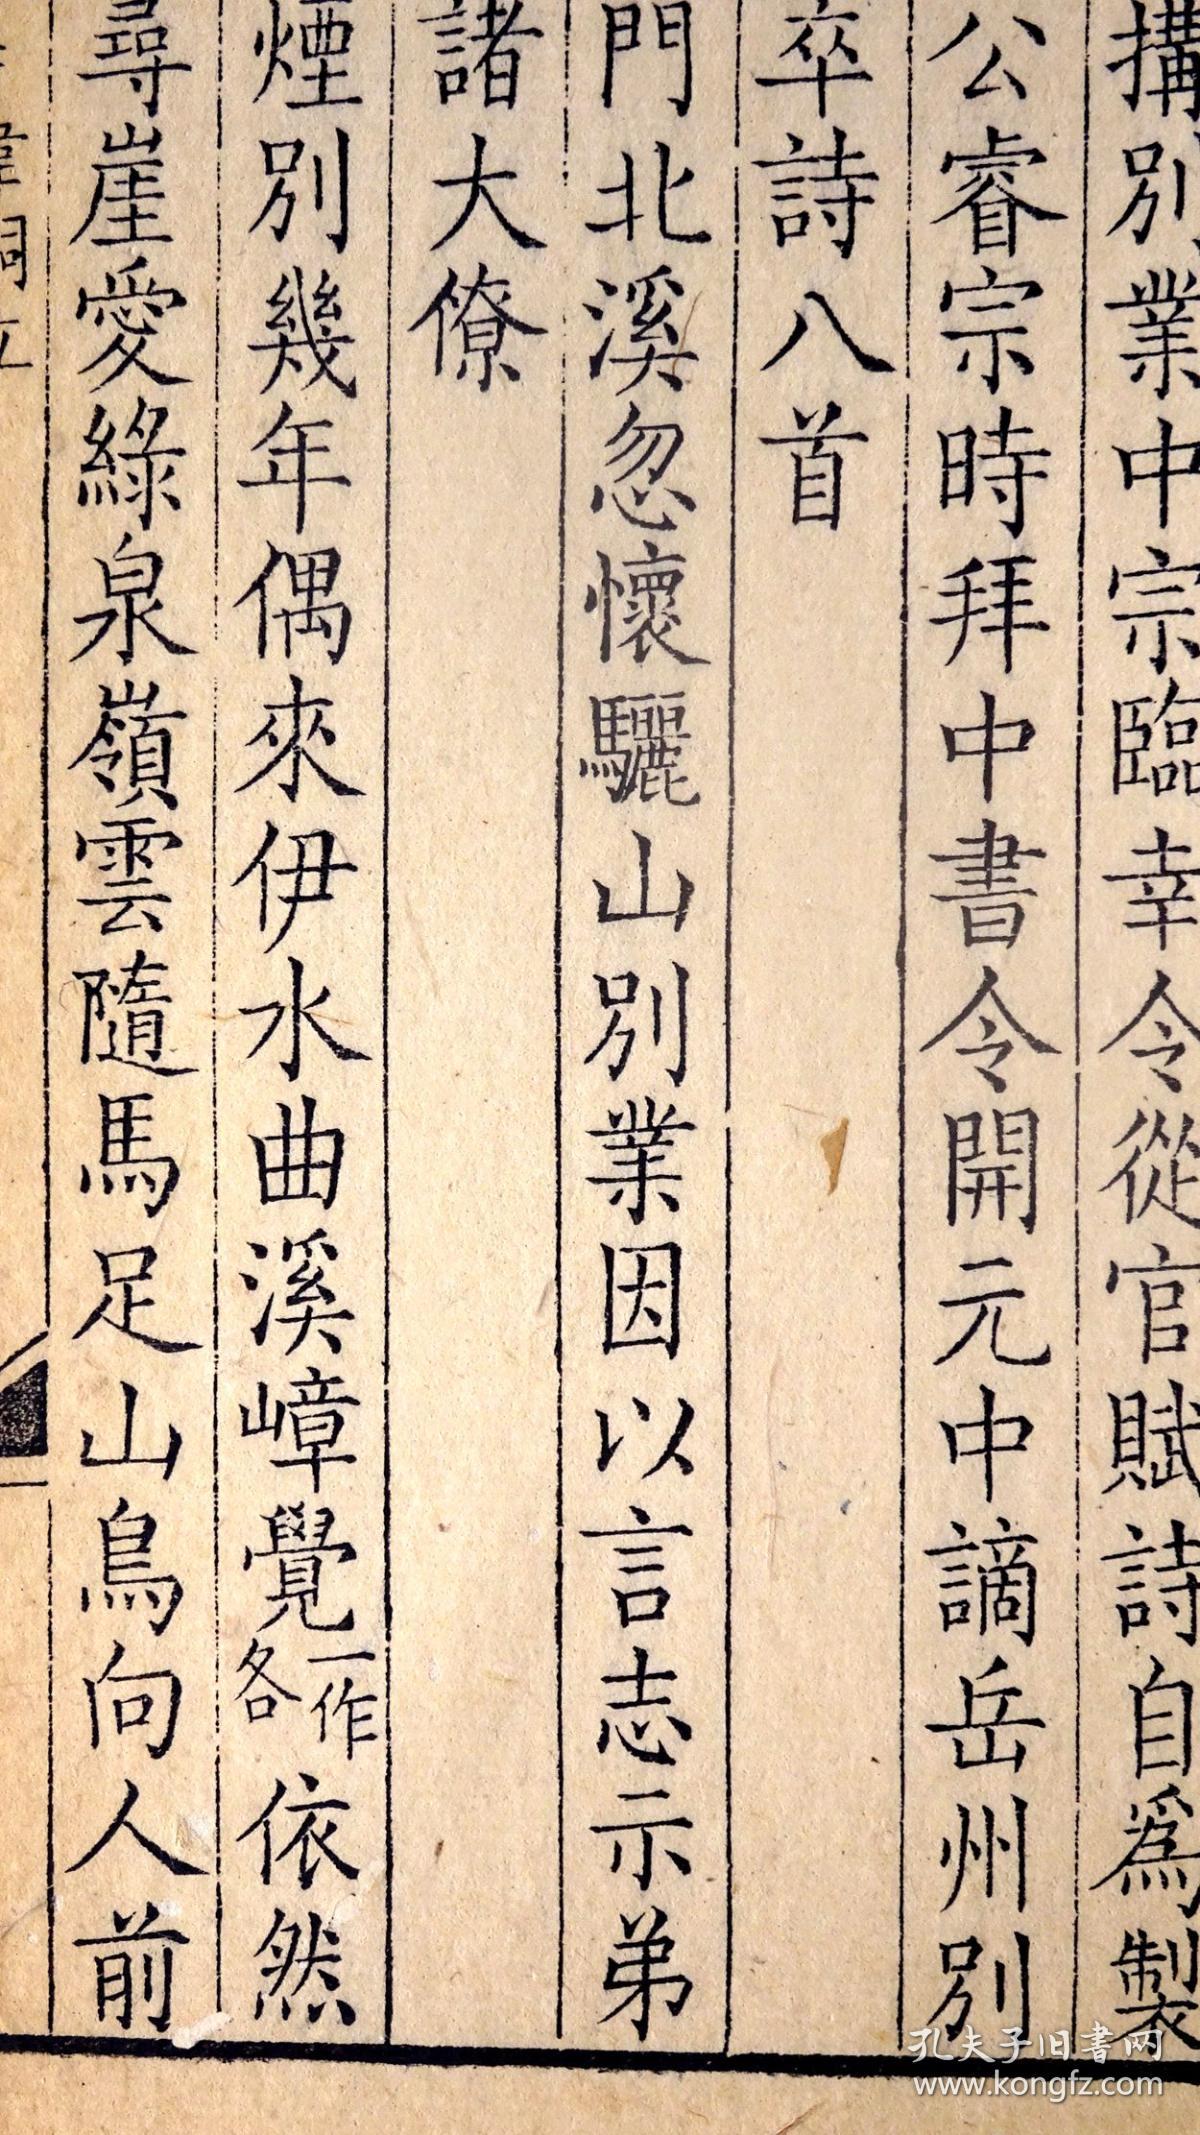 搆別業中宗臨幸令從官賦詩自爲製
公睿宗時拜中書令開元中謫岳州別
卒詩八首
門北溪忽懷驪山別業因以言志示弟
諸大僚
煙別幾年偶來伊水曲溪嶂覺一作各依然
尋崖愛綠泉嶺雲隨馬足山鳥向人前
一
孔夫子旧书网
www.kongfz.com